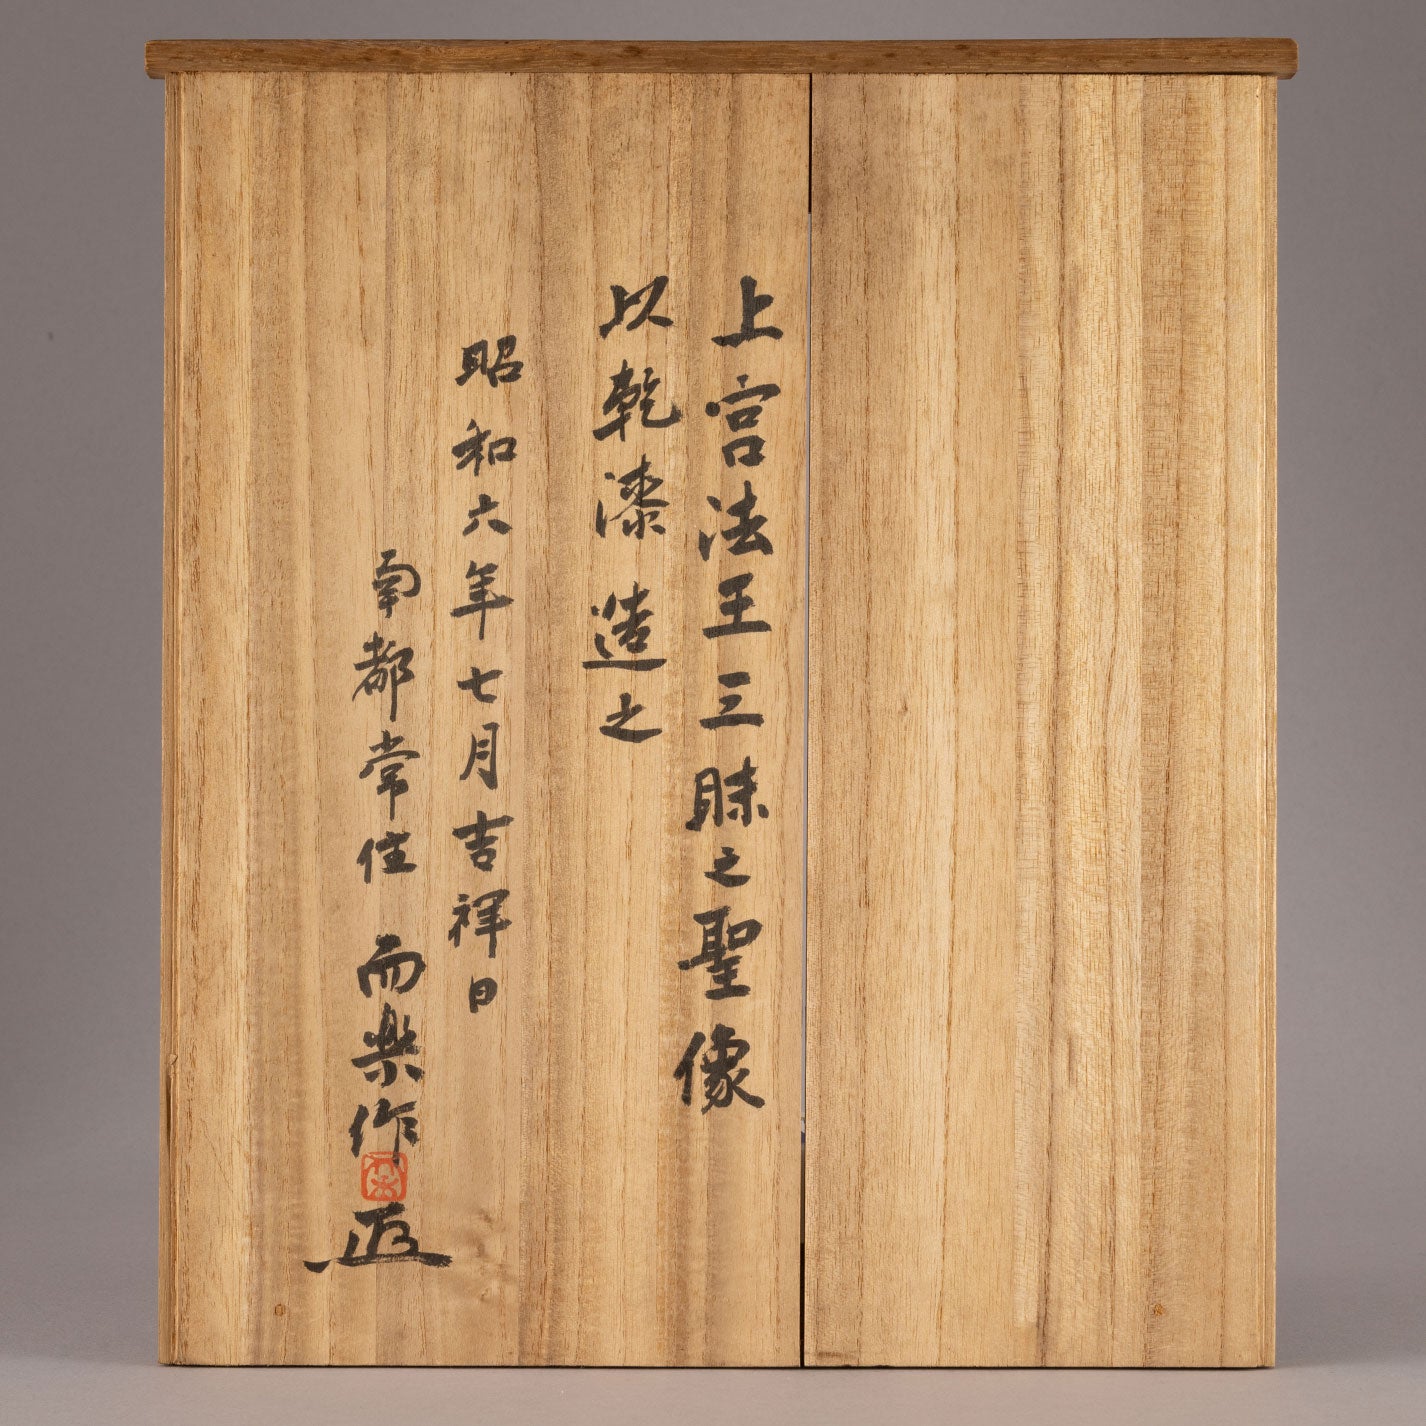 上宮法王三昧之聖像
以乾漆造之
昭和六年七月吉祥日
南都常住 而楽作